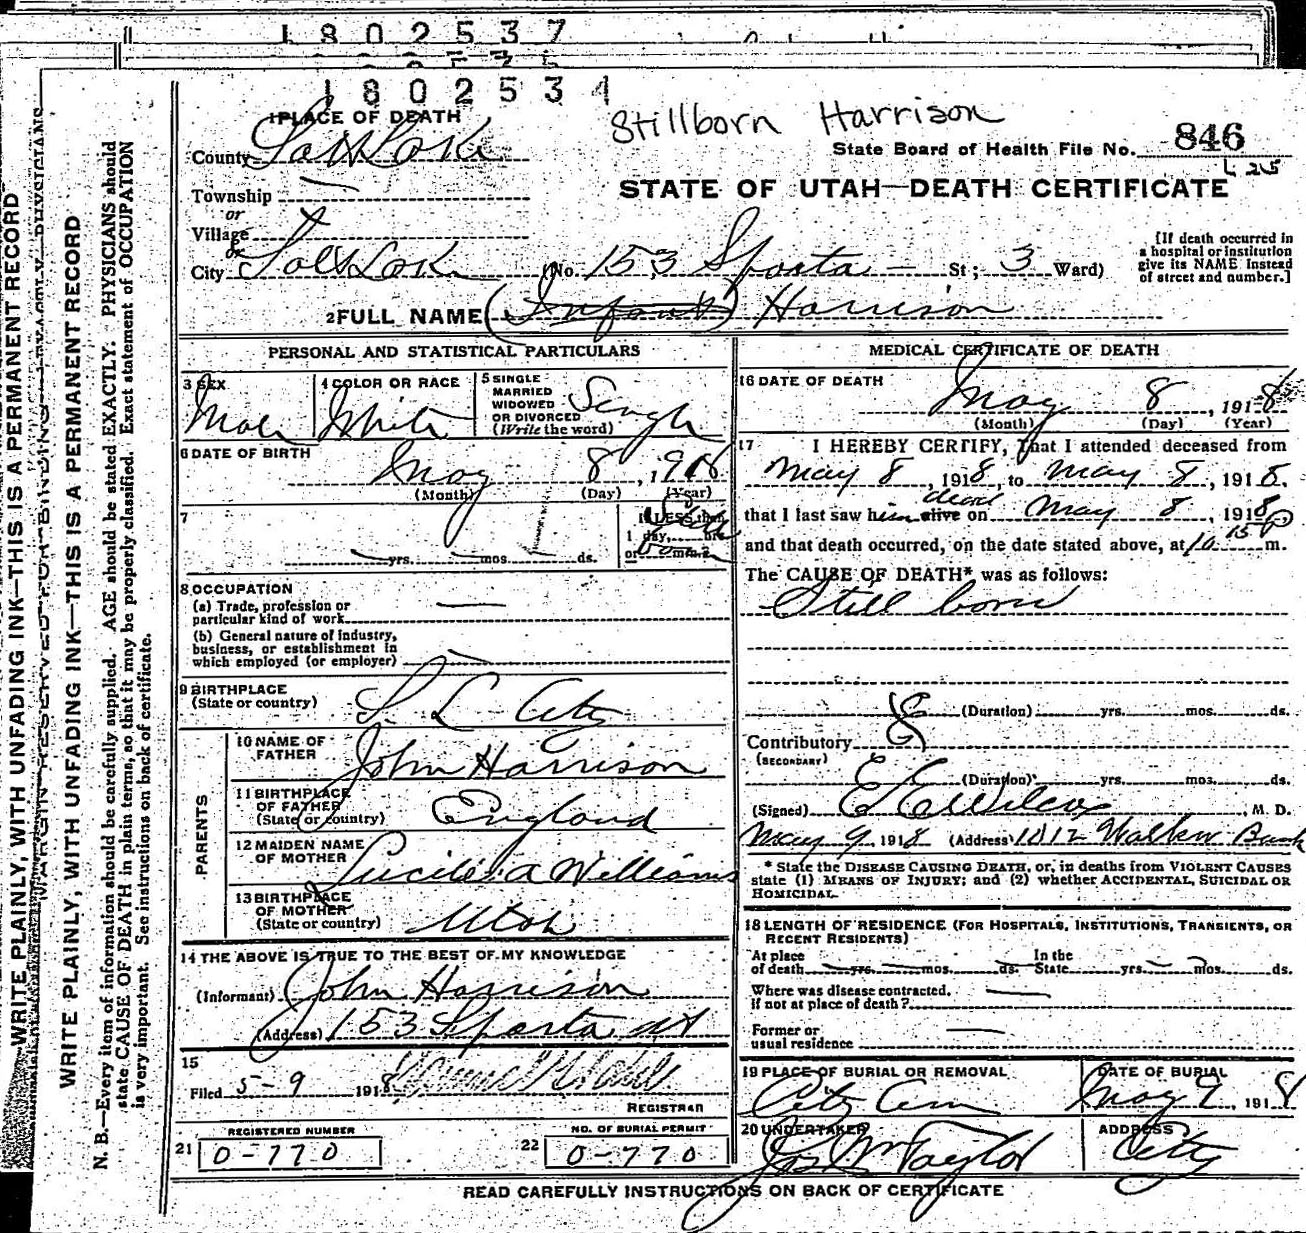 1802537
1802534
Stillborn Harrison
1 PLACE OF DEATH
County Salt Lake
State Board of Health File No. 846
L 25
Township
or
Village
or
City Salt Lake (No. 153 Sparta St; 3 Ward)
STATE OF UTAH—DEATH CERTIFICATE
[If death occurred in
a hospital or institution
give its NAME instead
of street and number.]
2 FULL NAME (Infant) Harrison
PERSONAL AND STATISTICAL PARTICULARS
3 SEX
Male
4 COLOR OR RACE
White
5 SINGLE
MARRIED
WIDOWED
OR DIVORCED
(Write the word)
Single
6 DATE OF BIRTH
May 8, 1918
(Month) (Day) (Year)
7
yrs. mos. ds.
If LESS than
1 day, hrs.
or min.?
8 OCCUPATION
(a) Trade, profession or
particular kind of work
(b) General nature of industry,
business, or establishment in
which employed (or employer)
9 BIRTHPLACE
(State or country) S L City
PARENTS
10 NAME OF
FATHER John Harrison
11 BIRTHPLACE
OF FATHER
(State or country) England
12 MAIDEN NAME
OF MOTHER Williams
13 BIRTHPLACE
OF MOTHER
(State or country) Utah
14 THE ABOVE IS TRUE TO THE BEST OF MY KNOWLEDGE
(Informant) John Harrison
(Address) 153 Sparta St
15
Filed 5-9 1918
REGISTRAR
REGISTERED NUMBER
21 0-770
NO. OF BURIAL PERMIT
22 0-770
MEDICAL CERTIFICATE OF DEATH
16 DATE OF DEATH
May 8, 1918
(Month) (Day) (Year)
17 I HEREBY CERTIFY, That I attended deceased from
May 8, 1918, to May 8, 1918,
that I last saw him alive dead on May 8, 1918,
and that death occurred, on the date stated above, at 10 15 P m.
The CAUSE OF DEATH* was as follows:
Still born
(Duration) yrs. mos. ds.
Contributory
(SECONDARY)
(Duration) yrs. mos. ds.
(Signed) E E Wilcox, M. D.
May 9 1918 (Address) 1012 Walker Bank
* State the DISEASE CAUSING DEATH, or, in deaths from VIOLENT CAUSES
state (1) MEANS OF INJURY; and (2) whether ACCIDENTAL, SUICIDAL OR
HOMICIDAL.
18 LENGTH OF RESIDENCE (FOR HOSPITALS, INSTITUTIONS, TRANSIENTS, OR
RECENT RESIDENTS)
At place
of death yrs. mos. ds.
In the
State yrs. mos. ds.
Where was disease contracted.
if not at place of death?
Former or
usual residence
19 PLACE OF BURIAL OR REMOVAL
City Cem
DATE OF BURIAL
May 9, 1918
20 UNDERTAKER
Jos Wm Taylor
ADDRESS
City
READ CAREFULLY INSTRUCTIONS ON BACK OF CERTIFICATE
WRITE PLAINLY, WITH UNFADING INK—THIS IS A PERMANENT RECORD
MARGIN RESERVED FOR BINDING
WRITE PLAINLY, WITH UNFADING INK—THIS IS A PERMANENT RECORD
N. B.—Every item of information should be carefully supplied. AGE should be stated EXACTLY. PHYSICIANS should
state CAUSE OF DEATH in plain terms, so that it may be properly classified. Exact statement of OCCUPATION
is very important. See instructions on back of certificate.